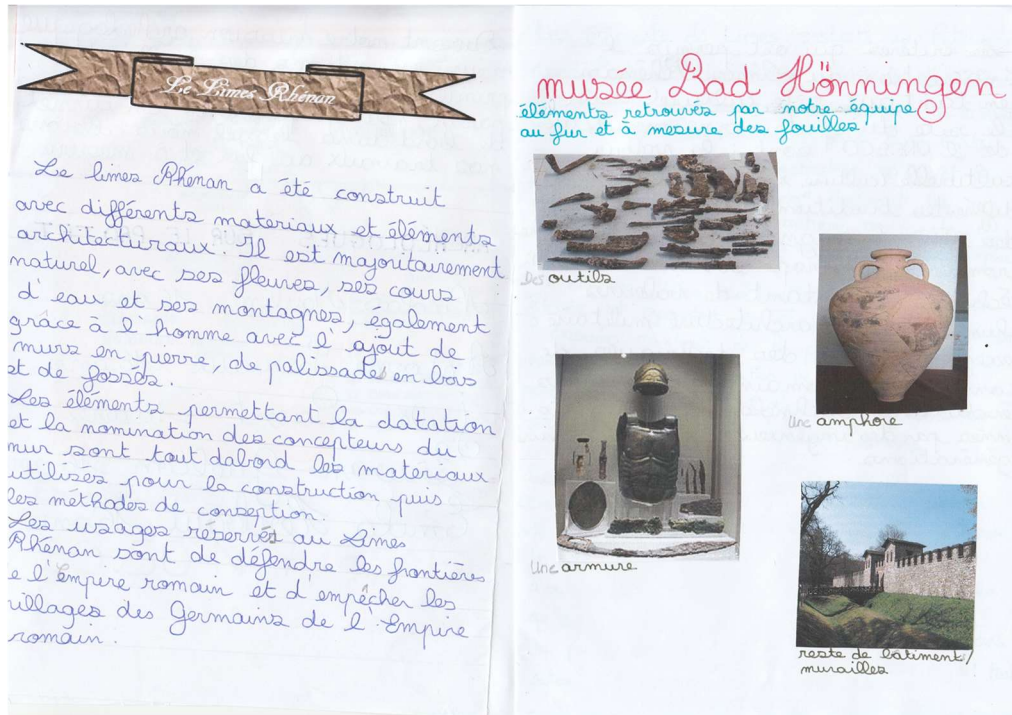 Le Limes Rhénan
Le limes Rhénan a été construit
avec différents materiaux et éléments
architecturaux. Il est majoritairement
naturel, avec ses fleuves, ses cours
d'eau et ses montagnes, également
grâce à l'homme avec l'ajout de
murs en pierre, de palissades en bois
et de fossés.
Les éléments permettant la datation
et la nomination des concepteurs du
mur sont tout dabord les materiaux
utilisés pour la construction puis
les méthodes de conseption.
Les usages réservés au Limes
Rhénan sont de défendre les frontières
e l'empire romain et d'empêcher les
illages des Germains de l'Empire
romain.
musée Bad Hönningen
éléments retrouvés par notre équipe
au fur et à mesure des fouilles
Des outils
Une amphore
Une armure
reste de bâtiment/
murailles